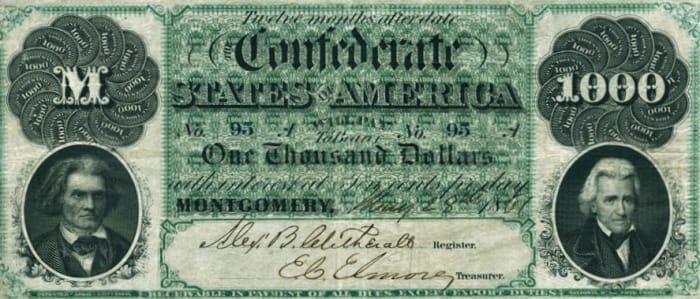 Twelve months after date
The Confederate
M STATES OF AMERICA 1000
will pay
No. 95 A to Bearer No. 95 A
One Thousand Dollars
with interest at Ten cents per day
MONTGOMERY, May 28th 1861
Alex. B. Clitherall Register.
E C Elmore, Treasurer.
RECEIVABLE IN PAYMENT OF ALL DUES EXCEPT EXPORT DUTIES